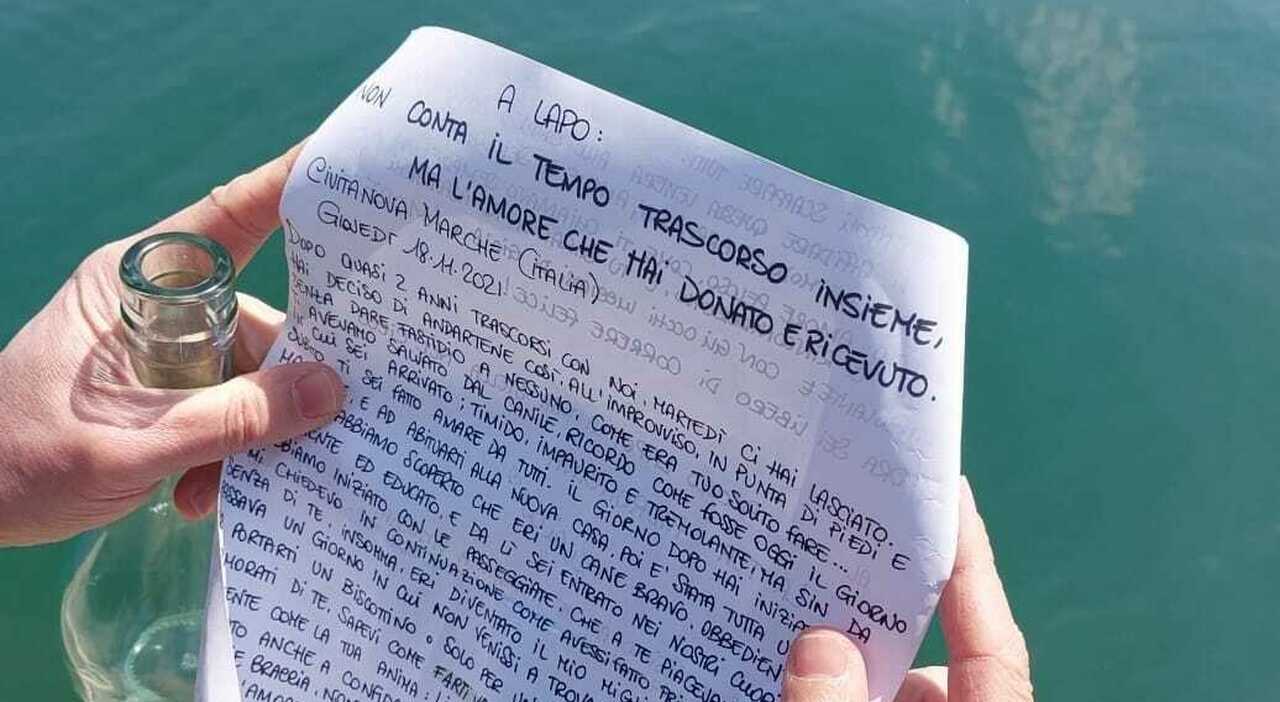 A LAPO:
NON CONTA IL TEMPO TRASCORSO INSIEME,
MA L'AMORE CHE HAI DONATO E RICEVUTO.
CIVITANOVA MARCHE (ITALIA)
GIOVEDÌ 18.11.2021
DOPO QUASI 2 ANNI TRASCORSI CON NOI, MARTEDÌ CI HAI LASCIATO.
HAI DECISO DI ANDARTENE COSÌ, ALL'IMPROVVISO, IN PUNTA DI PIEDI E
SENZA DARE FASTIDIO A NESSUNO, COME ERA TUO SOLITO FARE...
TI AVEVAMO SALVATO DAL CANILE, RICORDO COME FOSSE OGGI IL GIORNO
CUI SEI ARRIVATO; TIMIDO, IMPAURITO E TREMOLANTE, MA SIN DA
SUBITO TI SEI FATTO AMARE DA TUTTI. IL GIORNO DOPO HAI
E AD ABITUARTI ALLA NUOVA CASA, POI E' STATA TUTTA
ABBIAMO SCOPERTO CHE ERI UN CANE BRAVO, OBBEDIEN
ED EDUCATO, E DA LÌ SEI ENTRATO NEI NOSTRI CUORI
ABBIAMO INIZIATO CON LE PASSEGGIATE, CHE A TE PIACEVA
MI CHIEDEVO IN CONTINUAZIONE COME AVESSI FATTO
SENZA DI TE, INSOMMA, ERI DIVENTATO IL MIO
UN GIORNO IN CUI NON VENISSI A TROVA
PORTARTI UN BISCOTTINO O SOLO PER
DI TE, SAPEVI COME FARTI
COME LA TUA ANIMA;
ANCHE A
E BRACCIA, NON